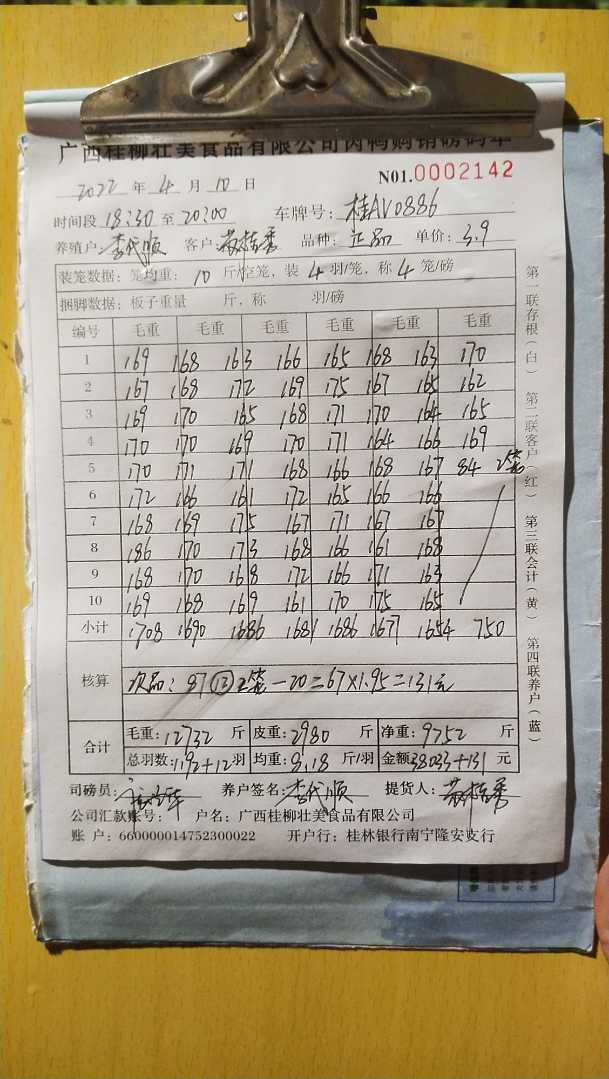 广西桂柳壮美食品有限公司肉鸭购销磅码单
NO1.0002142
2022 年 4 月 10 日
时间段 18:30 至 20:00 车牌号: 桂AV0886
养殖户: 李代顺 客户: 品种: 正品 单价: 3.9
装笼数据: 笼均重: 10 斤/空笼, 装 4 羽/笼, 称 4 笼/磅
捆脚数据: 板子重量 斤, 称 羽/磅
编号 毛重 毛重 毛重 毛重 毛重 毛重
1 169 168 163 166 165 168 163 170
2 167 168 172 169 175 167 165 162
3 169 170 165 168 171 170 164 165
4 170 170 169 170 171 164 166 169
5 170 171 171 168 166 168 167 84 2笼
6 172 166 161 172 165 166 166
7 168 169 175 167 171 167 167
8 186 170 173 168 166 161 168
9 168 170 168 172 166 171 163
10 169 168 169 161 170 175 165
小计 1708 1690 1686 1681 1686 1677 1654 750
核算 次品: 87 ⑫ 2笼-20=67×1.95=131元
合计 毛重: 12732 斤 皮重: 2980 斤 净重: 9752 斤
总羽数: 1192+12 羽 均重: 8.18 斤/羽 金额 38033+131 元
司磅员: 养户签名: 李代顺 提货人:
公司汇款账号: 户名: 广西桂柳壮美食品有限公司
账 户: 660000014752300022 开户行: 桂林银行南宁隆安支行
第一联存根(白) 第二联客户(红) 第三联会计(黄) 第四联养户(蓝)